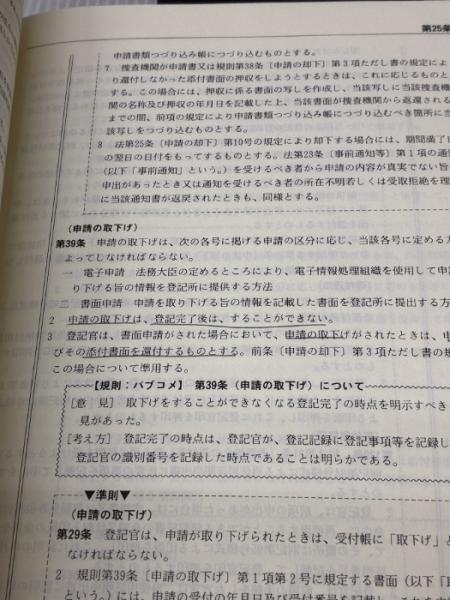 第25条
申請書類つづり込み帳につづり込むものとする。
7 捜査機関が申請書又は規則第38条〔申請の却下〕第3項ただし書の規定によ
り還付しなかった添付書面の押収をしようとするときは、これに応じるものと
する。この場合には、押収に係る書面の写しを作成し、当該写しに当該捜査機
関の名称及び押収の年月日を記載した上、当該書面が捜査機関から返還される
までの間、前項の規定により申請書類つづり込み帳につづり込むべき箇所に当
該写しをつづり込むものとする。
8 法第25条〔申請の却下〕第10号の規定により却下する場合には、期間満了日
の翌日の日付をもってするものとする。法第23条〔事前通知等〕第1項の通知
(以下「事前通知」という。)を受けるべき者から申請の内容が真実でない旨
申出があったとき又は通知を受けるべき者の所在不明若しくは受取拒絶を理
に当該通知書が返戻されたときも、同様とする。
(申請の取下げ)
第39条 申請の取下げは、次の各号に掲げる申請の区分に応じ、当該各号に定める方
よってしなければならない。
一 電子申請 法務大臣の定めるところにより、電子情報処理組織を使用して申
り下げる旨の情報を登記所に提供する方法
二 書面申請 申請を取り下げる旨の情報を記載した書面を登記所に提出する方
2 申請の取下げは、登記完了後は、することができない。
3 登記官は、書面申請がされた場合において、申請の取下げがされたときは、申
びその添付書面を還付するものとする。前条〔申請の却下〕第3項ただし書の規
この場合について準用する。
【規則:パブコメ】 第39条(申請の取下げ)について
[意 見] 取下げをすることができなくなる登記完了の時点を明示すべき
見があった。
[考え方] 登記完了の時点は、登記官が、登記記録に登記事項等を記録し
登記官の識別番号を記録した時点であることは明らかである。
▼準則▼
(申請の取下げ)
第29条 登記官は、申請が取り下げられたときは、受付帳に「取下げ」と
なければならない。
2 規則第39条〔申請の取下げ〕第1項第2号に規定する書面(以下「
という。)には、申請の受付の年月日及び受付番号を記載し、これを